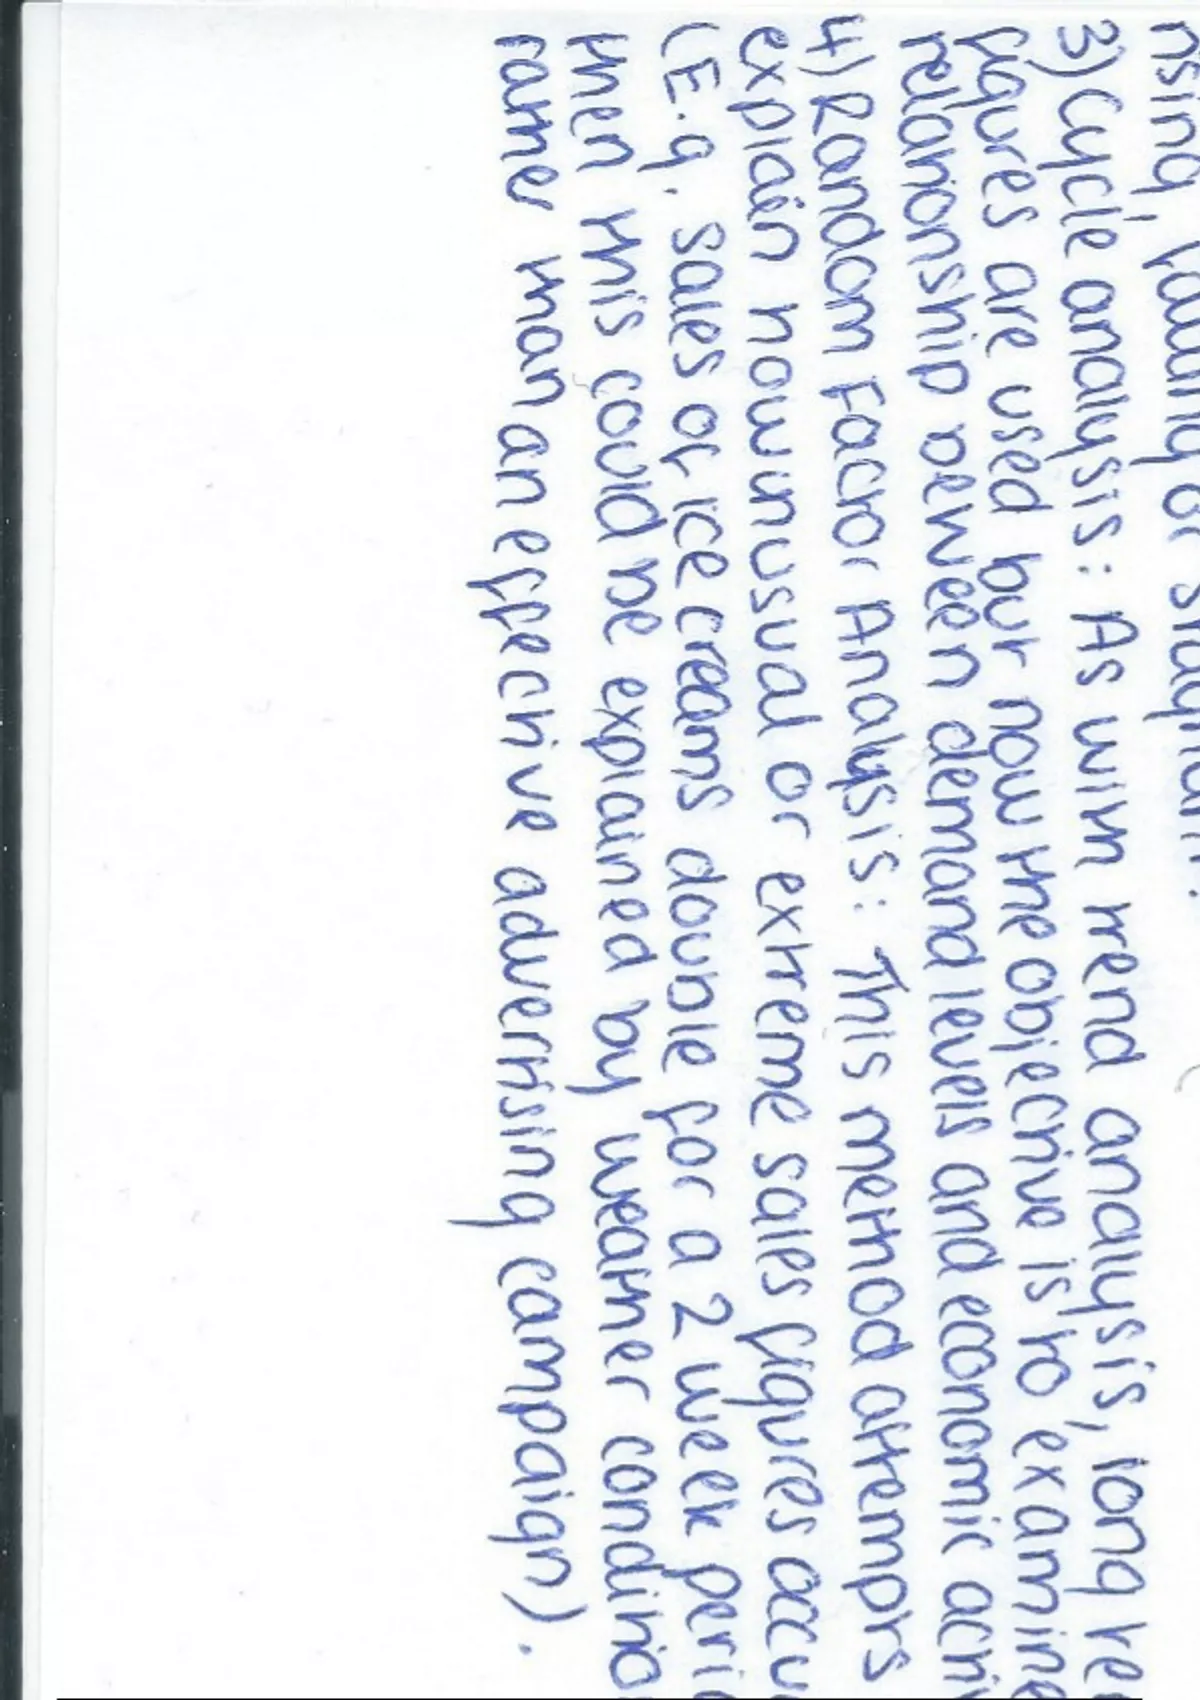 rising, falling or stagnant.
3) Cycle analysis: As with trend analysis, long te
figures are used but now the objective is to examine
relationship between demand levels and economic activ
4) Random Factor Analysis: This method attempts
explain how unusual or extreme sales figures occu
(E.g. sales of ice creams double for a 2 week peri
then this could be explained by weather conditio
rather than an effective advertising campaign).